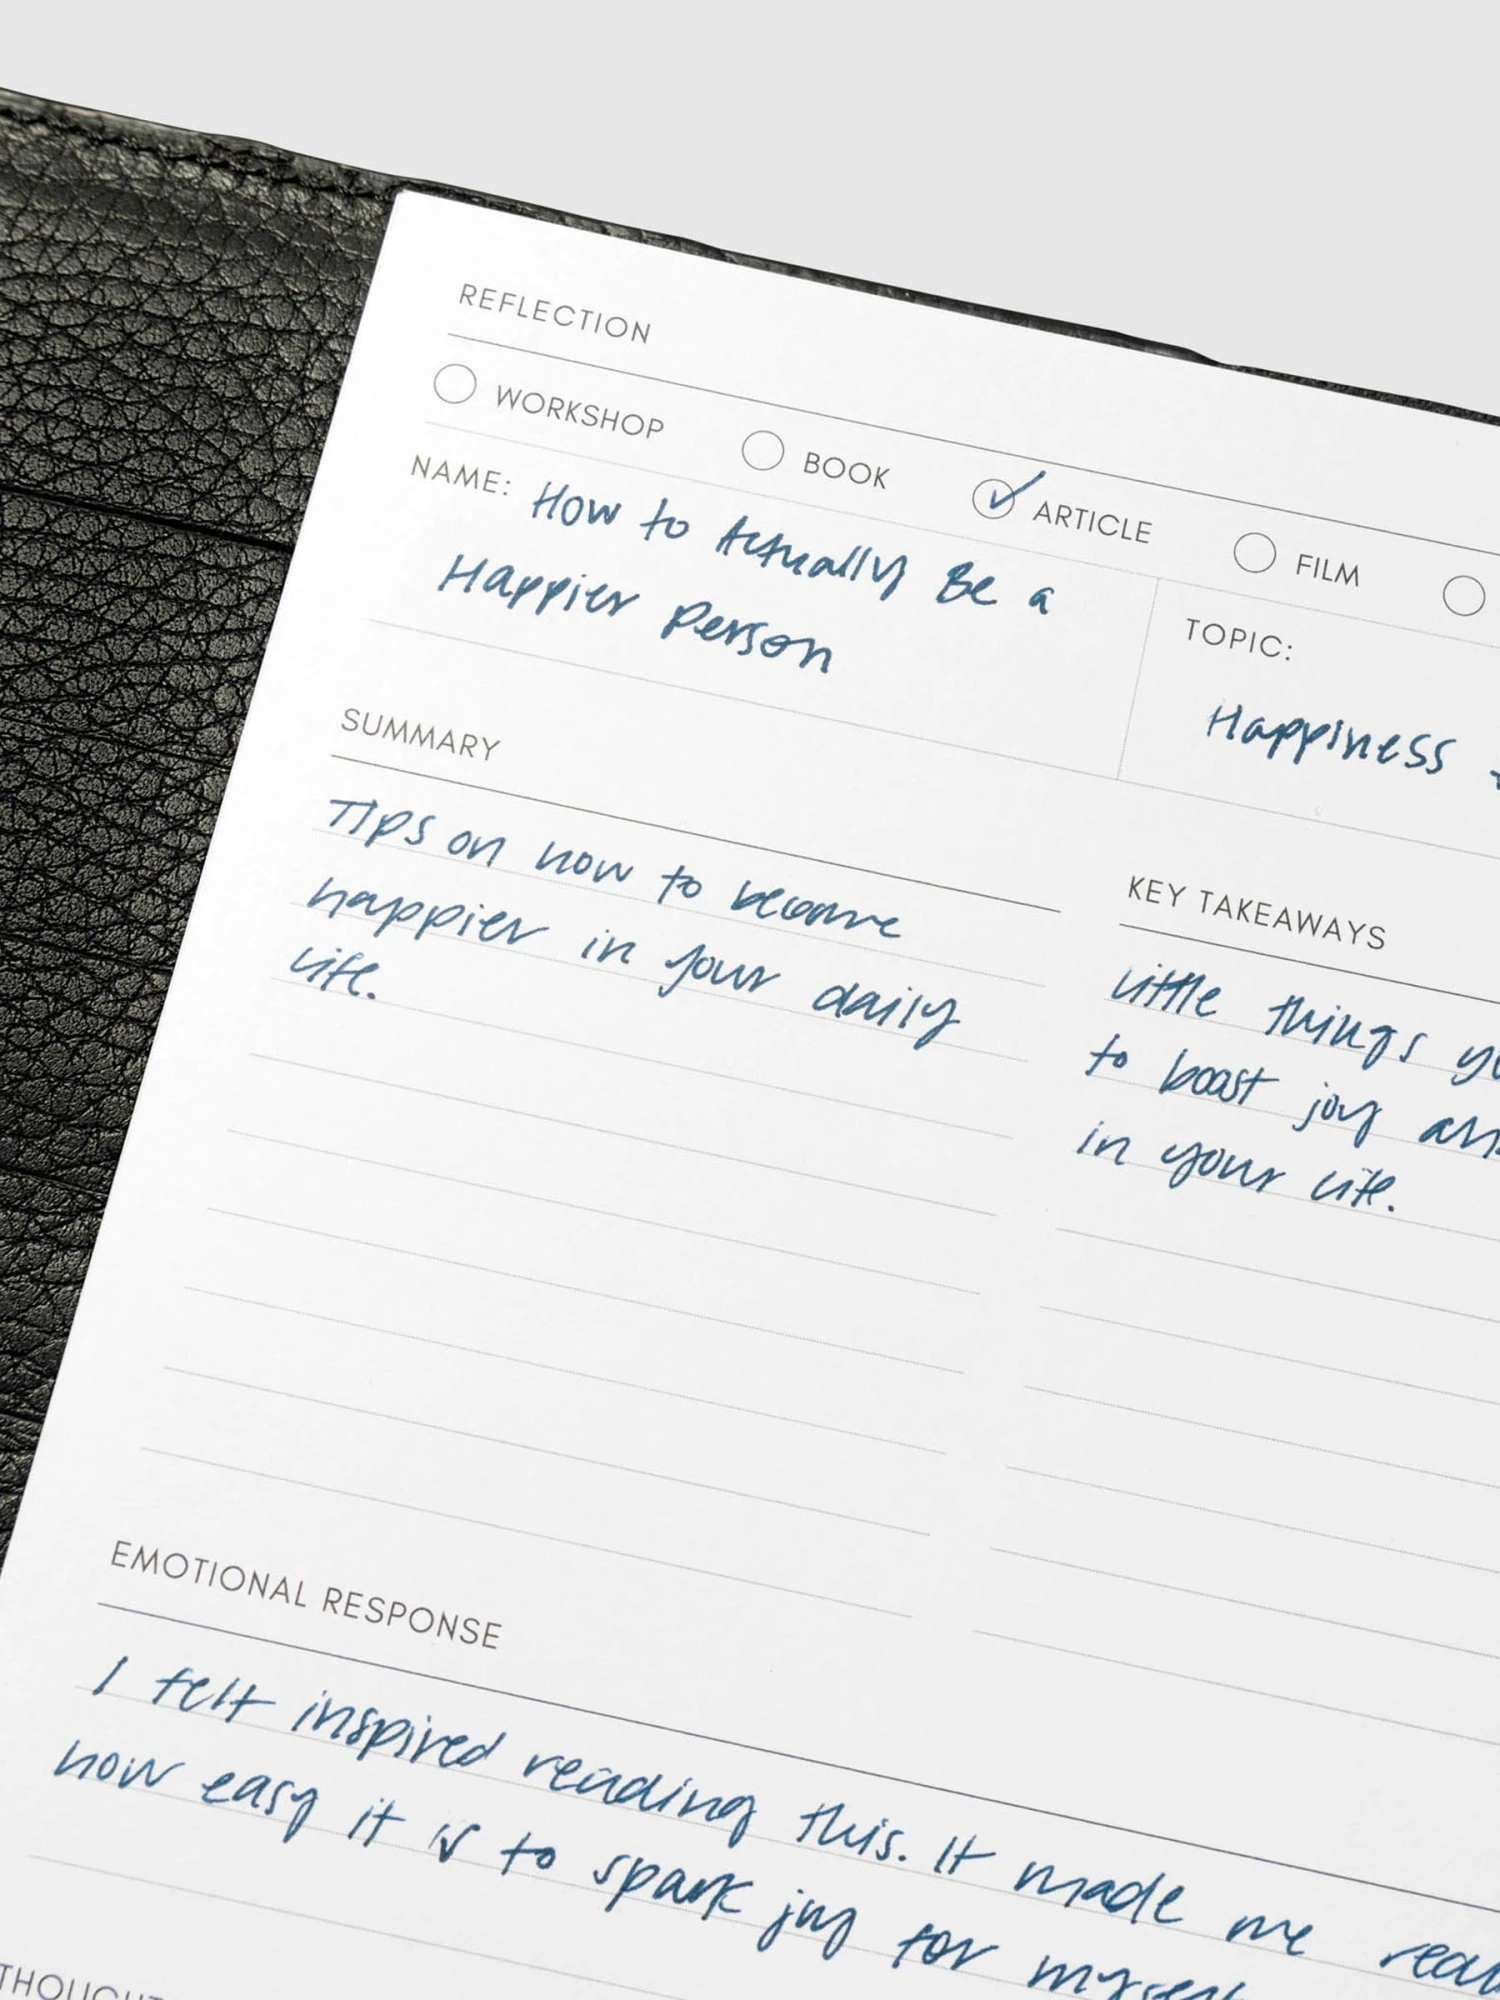 REFLECTION
WORKSHOP BOOK ARTICLE FILM
NAME: How to Actually Be a
Happier Person
TOPIC:
Happiness
SUMMARY
Tips on how to become
happier in your daily
life.
KEY TAKEAWAYS
Little things
to boost joy
in your life.
EMOTIONAL RESPONSE
I felt inspired reading this. It made me
how easy it is to spark joy for